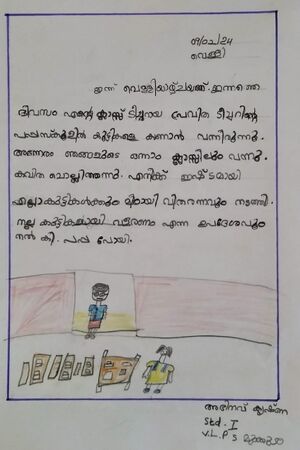 09/02/24
വെള്ളി
ഇന്ന് വെള്ളിയാഴ്ചയാണ്. ഇന്നത്തെ
ദിവസം എന്റെ ക്ലാസ്സ് ടീച്ചറായ പ്രവിത ടീച്ചറിന്റെ
പപ്പസ്കൂളിൽ കുട്ടികളെ കാണാൻ വന്നിരുന്നു.
അങ്ങനെ ഞങ്ങളുടെ ഒന്നാം ക്ലാസ്സിലും വന്നു.
കവിത ചൊല്ലിത്തന്നു. എനിക്ക് ഇഷ്ടമായി
എല്ലാകുട്ടികൾക്കും മിഠായി വിതരണവും നടത്തി.
നല്ല കുട്ടികളായി വളരണം എന്ന ഉപദേശവും
നൽകി. പപ്പ പോയി.
അഭിനവ് കൃഷ്ണ
Std. I
V.L.P S